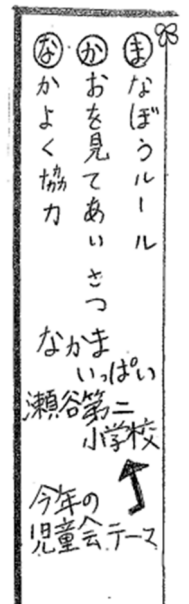 まなぼうルール
かおを見てあいさつ
なかよく協力
なかま
いっぱい
瀬谷第二
小学校
今年の
児童会テーマ